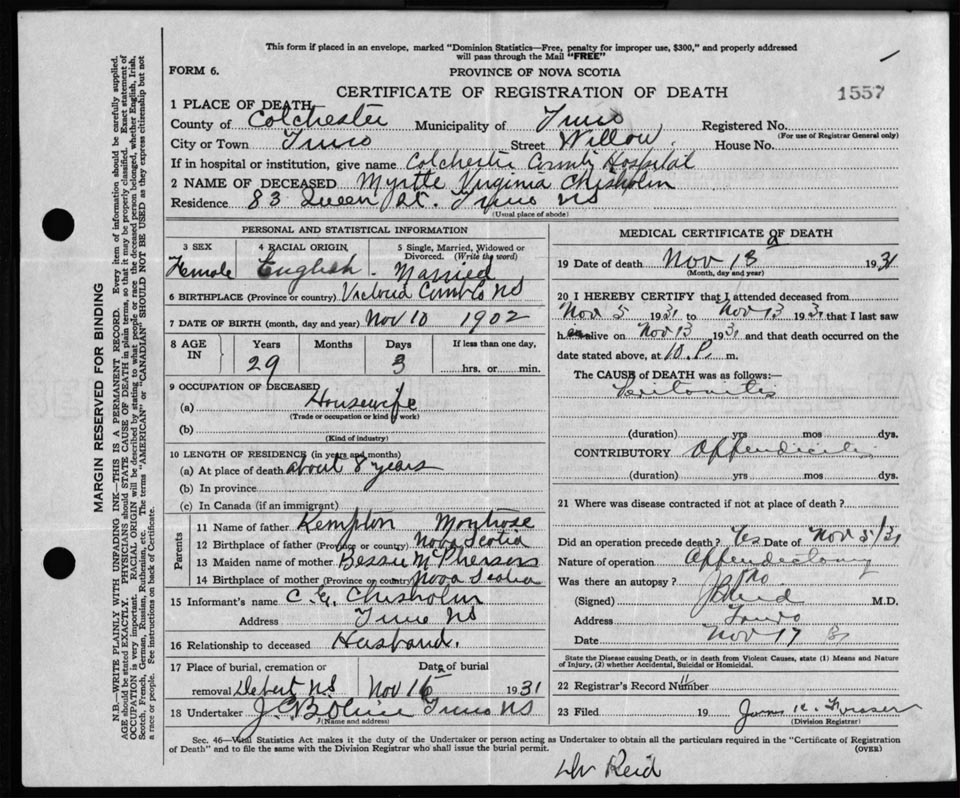 This form if placed in an envelope, marked "Dominion Statistics—Free, penalty for improper use, $300," and properly addressed
will pass through the Mail "FREE"
FORM 6.
PROVINCE OF NOVA SCOTIA
CERTIFICATE OF REGISTRATION OF DEATH
1557
1 PLACE OF DEATH
County of Colchester Municipality of Truro Registered No.
(For use of Registrar General only)
City or Town Truro Street Willow. House No.
If in hospital or institution, give name Colchester County Hospital
2 NAME OF DECEASED Myrtle Virginia Chisholm
Residence 83 Queen St. Truro NS
(Usual place of abode)
MARGIN RESERVED FOR BINDING
N.B.—WRITE PLAINLY WITH UNFADING INK—THIS IS A PERMANENT RECORD. Every item of information should be carefully supplied.
AGE should be stated EXACTLY. PHYSICIANS should STATE CAUSE OF DEATH in plain terms, so that it may be properly classified. Exact statement of
OCCUPATION is very important. RACIAL ORIGIN will be described by stating to what people or race the deceased person belonged, whether English, Irish,
Scotch, French, German, Russian, Ruthenian, etc. The terms "AMERICAN" or "CANADIAN" SHOULD NOT BE USED as they express citizenship but not
a race or people. See instructions on back of Certificate.
PERSONAL AND STATISTICAL INFORMATION
3 SEX 4 RACIAL ORIGIN 5 Single, Married, Widowed or
Divorced. (Write the word)
Female English. Married
6 BIRTHPLACE (Province or country) Victoria Cumb Co NS
7 DATE OF BIRTH (month, day and year) Nov 10 1902
8 AGE IN Years Months Days If less than one day,
29 3 hrs. or min.
9 OCCUPATION OF DECEASED
(a) Housewife
(Trade or occupation or kind of work)
(b)
(Kind of industry)
10 LENGTH OF RESIDENCE (in years and months)
(a) At place of death about 8 years
(b) In province
(c) In Canada (if an immigrant)
Parents
11 Name of father Kempton Montrose
12 Birthplace of father (Province or country) Nova Scotia
13 Maiden name of mother Bessie McPherson
14 Birthplace of mother (Province or country) Nova Scotia
15 Informant's name C. G. Chisholm
Address Truro NS
16 Relationship to deceased Husband.
17 Place of burial, cremation or Date of burial
removal Debert NS Nov 16 1931
18 Undertaker Truro NS
(Name and address)
MEDICAL CERTIFICATE OF DEATH
19 Date of death Nov 13 1931
(Month, day and year)
20 I HEREBY CERTIFY that I attended deceased from
Nov 5 1931 to Nov 13 1931 that I last saw
h alive on Nov 13 1931 and that death occurred on the
date stated above, at 10 P. m.
The CAUSE of DEATH was as follows:—
Peritonitis
(duration) yrs mos dys.
CONTRIBUTORY Appendicitis
(duration) yrs mos dys.
21 Where was disease contracted if not at place of death?
Did an operation precede death? Yes Date of Nov 5/31
Nature of operation Appendectomy
Was there an autopsy? No
(Signed) Reid M.D.
Address Truro
Date Nov 17 31
State the Disease causing Death, or in death from Violent Causes, state (1) Means and Nature
of Injury, (2) whether Accidental, Suicidal or Homicidal.
22 Registrar's Record Number
23 Filed 19 Fraser
(Division Registrar)
Sec. 46—Vital Statistics Act makes it the duty of the Undertaker or person acting as Undertaker to obtain all the particulars required in the "Certificate of Registration
of Death" and to file the same with the Division Registrar who shall issue the burial permit. (OVER)
Dr Reid